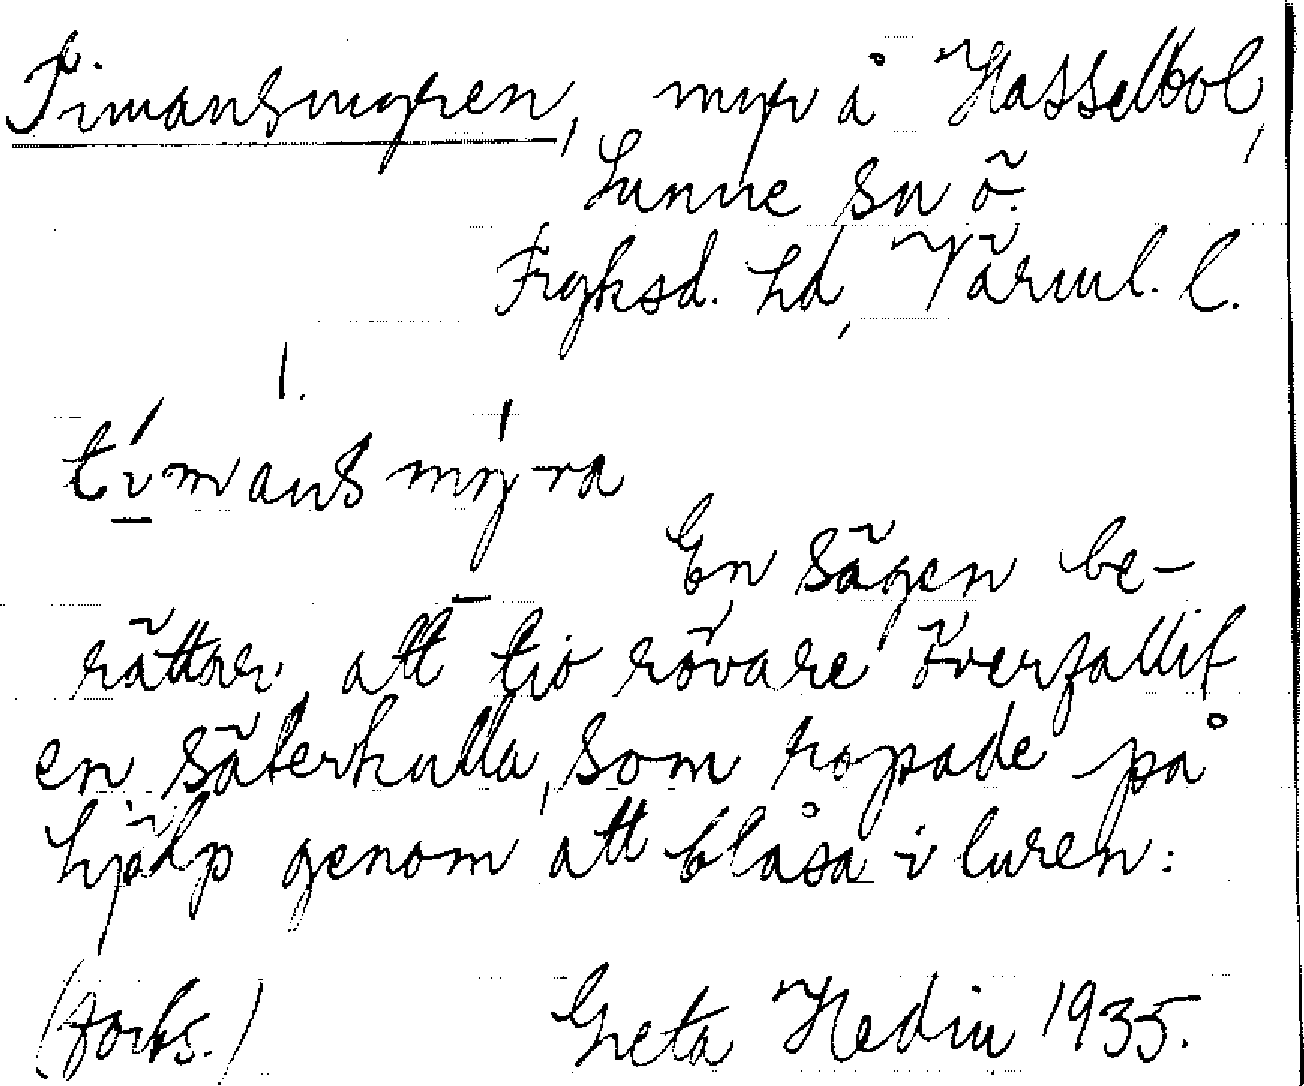 Timansmyren, myr å Hasselbol,
Sunne sn ö.
Fryksd. hd, Värml. l.
1.
tímans mý-ra
En sägen be-
rättar, att tio rövare överfallit
en säterkulla, som ropade på
hjälp genom att blåsa i luren:
(forts.) Greta Hedin 1935.